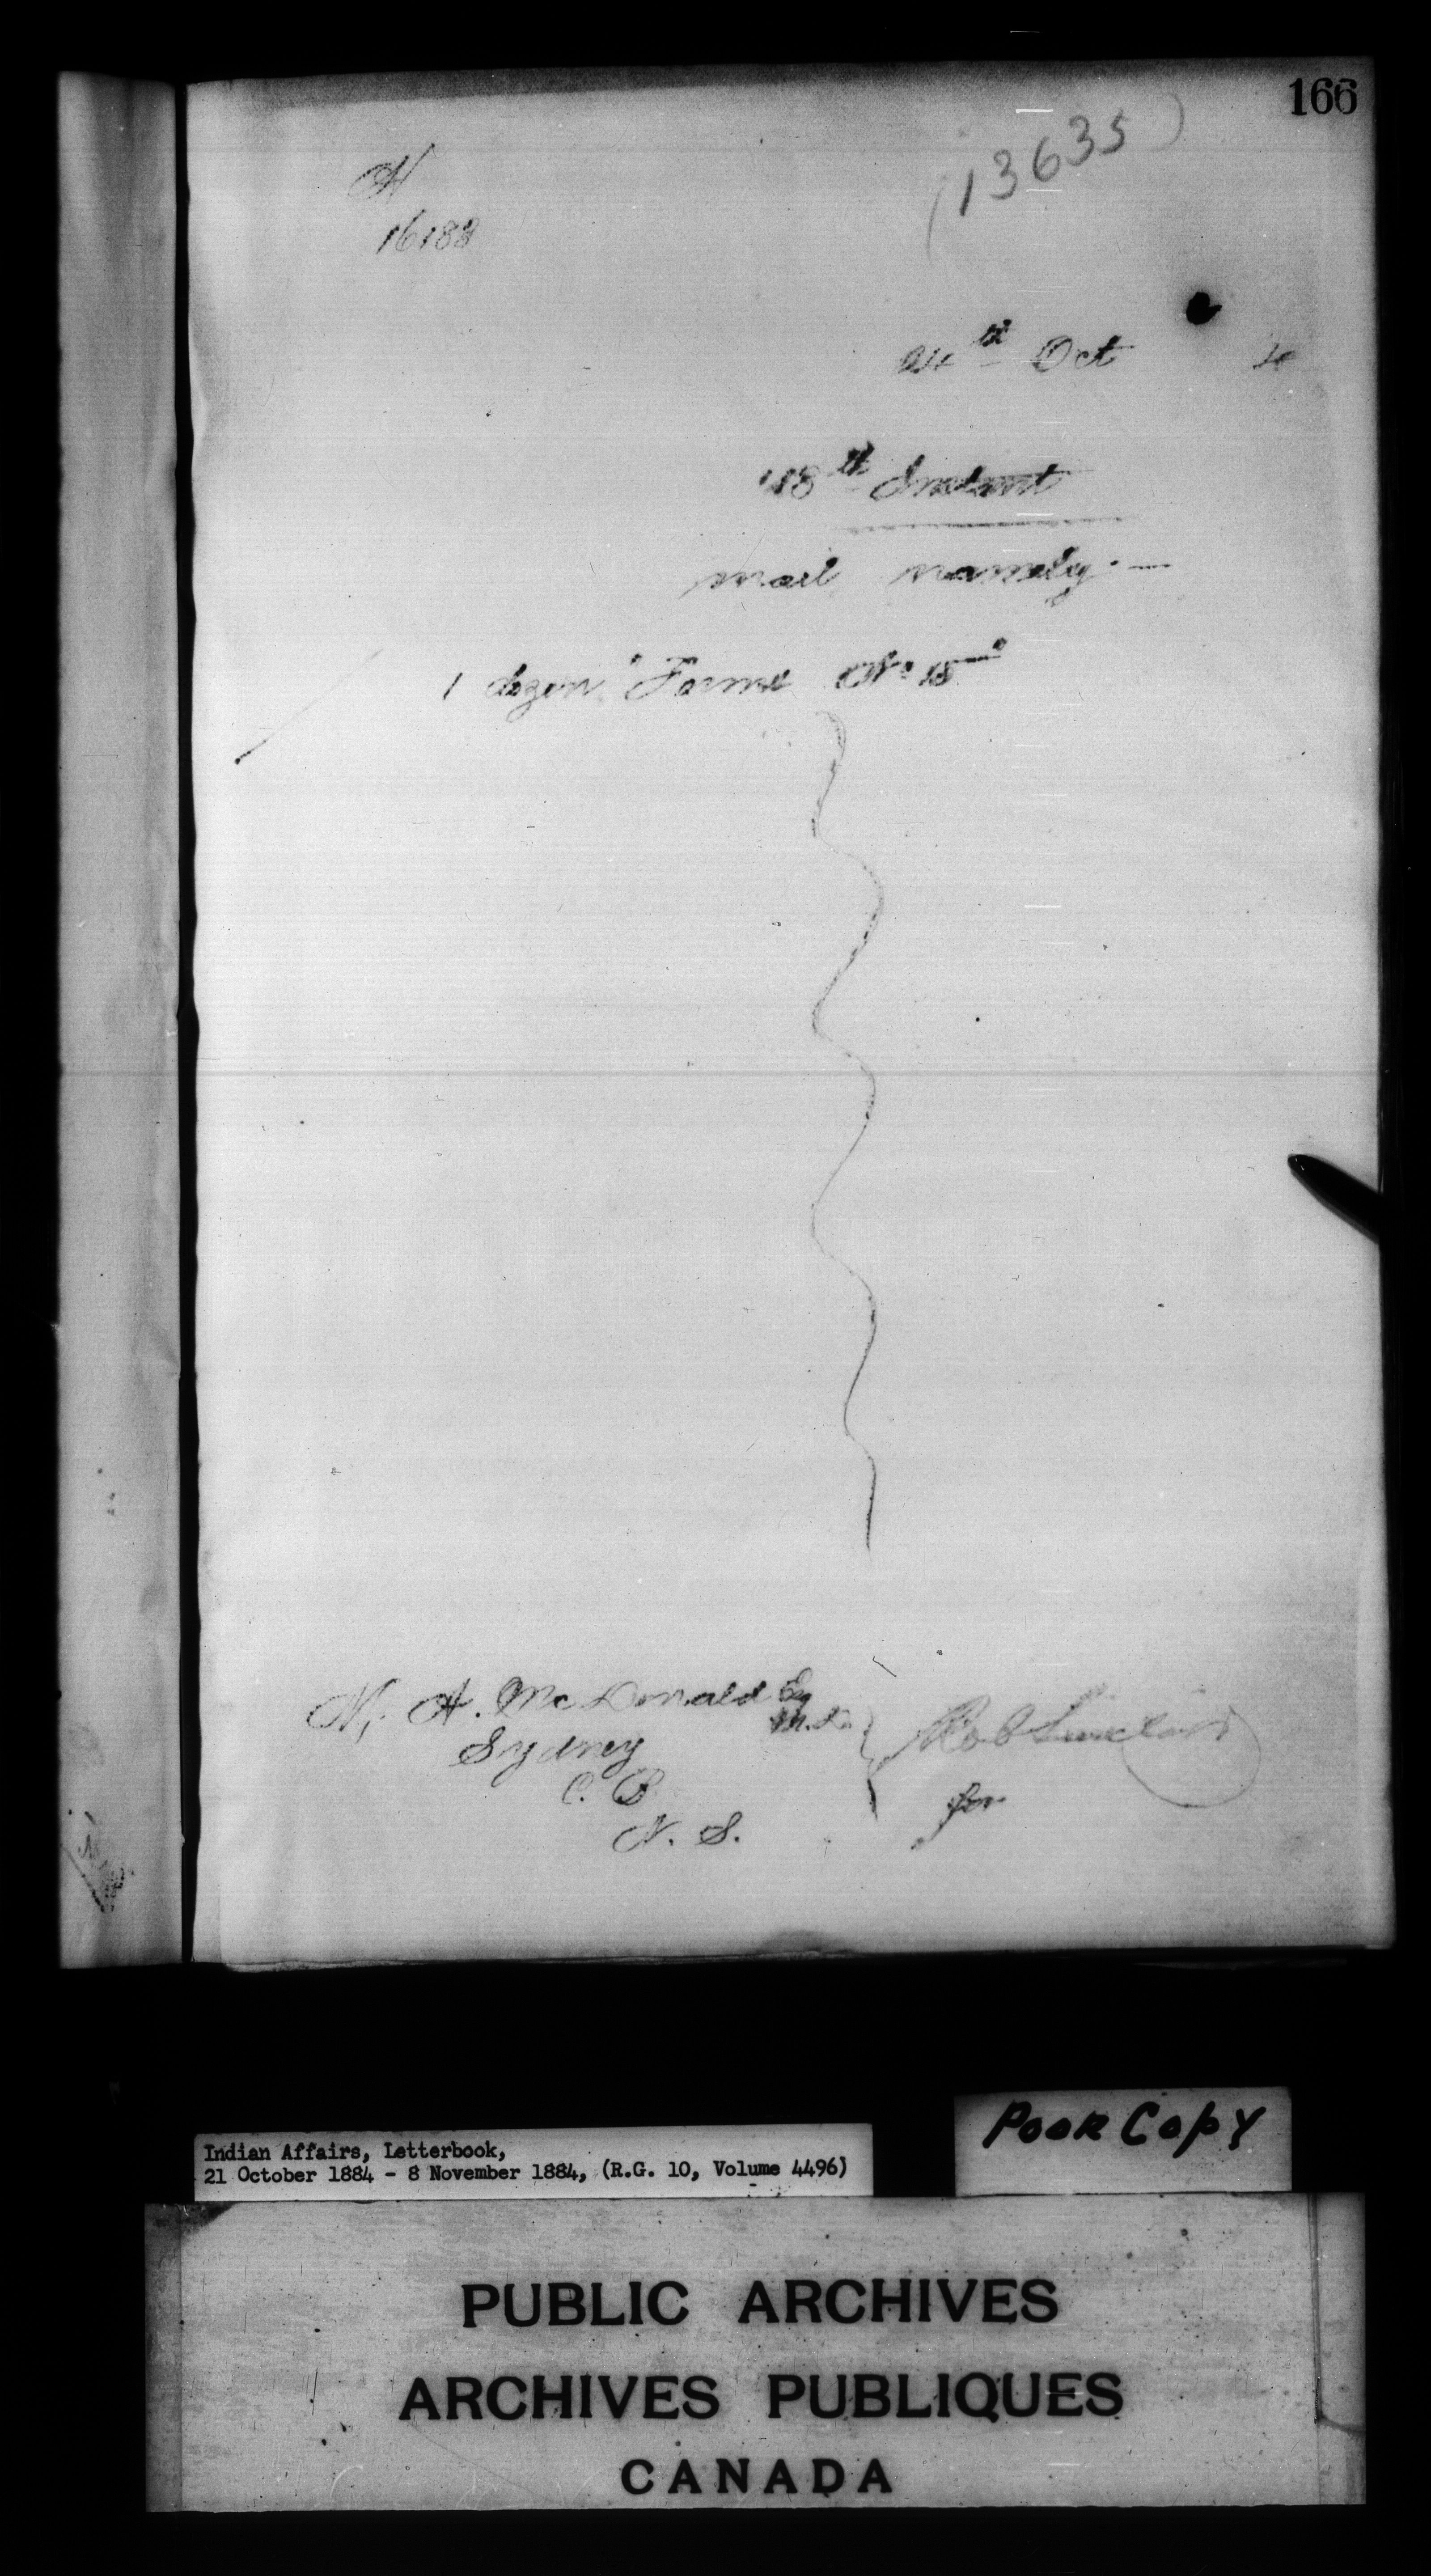 166
(13635)
N
16188
24th Oct 4
18th Instant
mail namely:—
1 dozen "Forms No 15"
N, A. McDonald Esq
M.D.
Sydney
C. B
N. S.
Rob Sinclair
for
Indian Affairs, Letterbook,
21 October 1884 - 8 November 1884, (R.G. 10, Volume 4496)
Poor Copy
PUBLIC ARCHIVES
ARCHIVES PUBLIQUES
CANADA